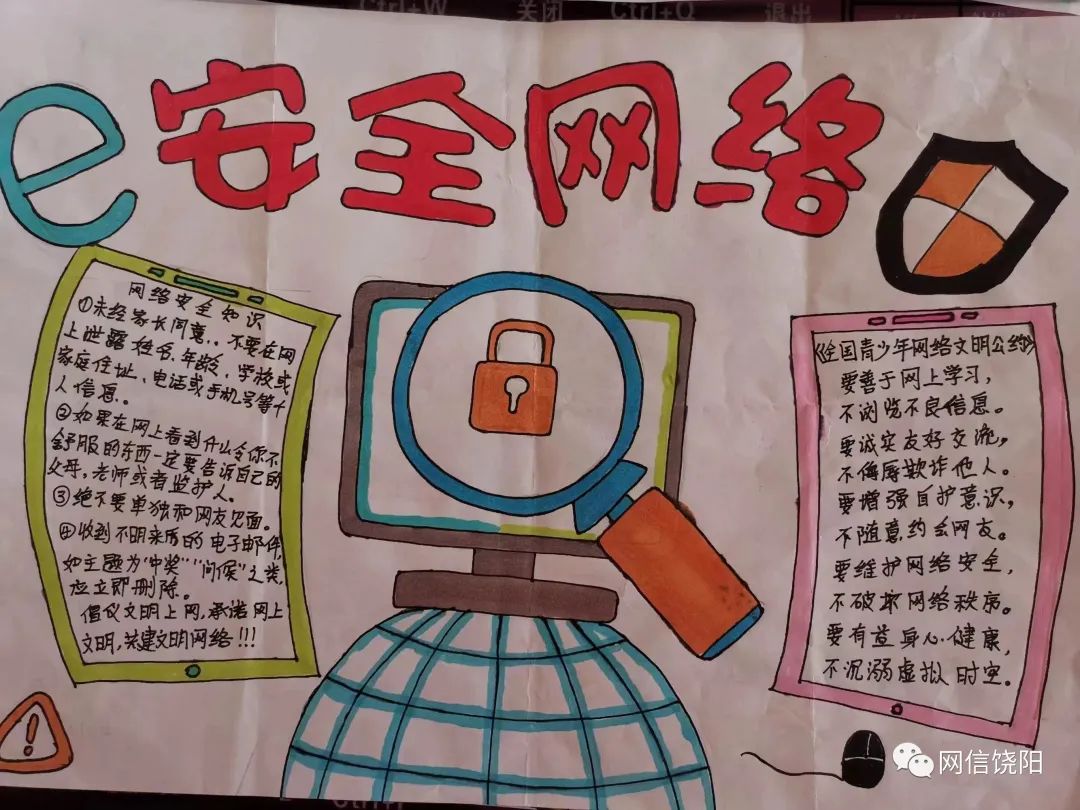 Ctrl+W
关闭
Ctrl+Q
退出
e安全网络
网络安全知识
①未经家长同意.,不要在网
上泄露姓名、年龄、学校或
家庭住址、电话或手机号等个
人信息。
②如果在网上看到什么令你不
舒服的东西一定要告诉自己的
父母,老师或者监护人。
③绝不要单独和网友见面。
④收到不明来历的电子邮件,
如主题为“中奖”“问候”之类,
应立即删除。
倡仪文明上网,承诺网上
文明,共建文明网络!!!
《全国青少年网络文明公约》
要善于网上学习,
不浏览不良信息。
要诚实友好交流,
不侮辱欺诈他人。
要增强自护意识,
不随意约会网友。
要维护网络安全,
不破坏网络秩序。
要有益身心健康,
不沉溺虚拟时空。
!
网信饶阳